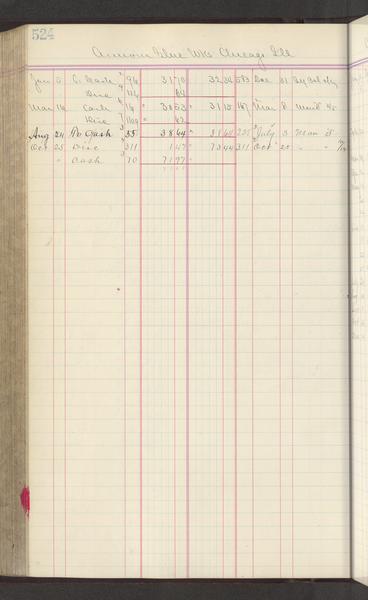 524
Armour Glue Wks Chicago Ill
Jan 5 C. Cash 96 3170 3234 583 Dec 31
Disc 114 64
Mar 14 Cash 14 3053 3115 167 Mar 8 Mdse
Disc 1109 62
Aug 24 By Cash 35 3844 3844 235 July 3 Man
Oct 25 Disc 311 147 7344 311 Oct 20 " "
" Cash 70 7197